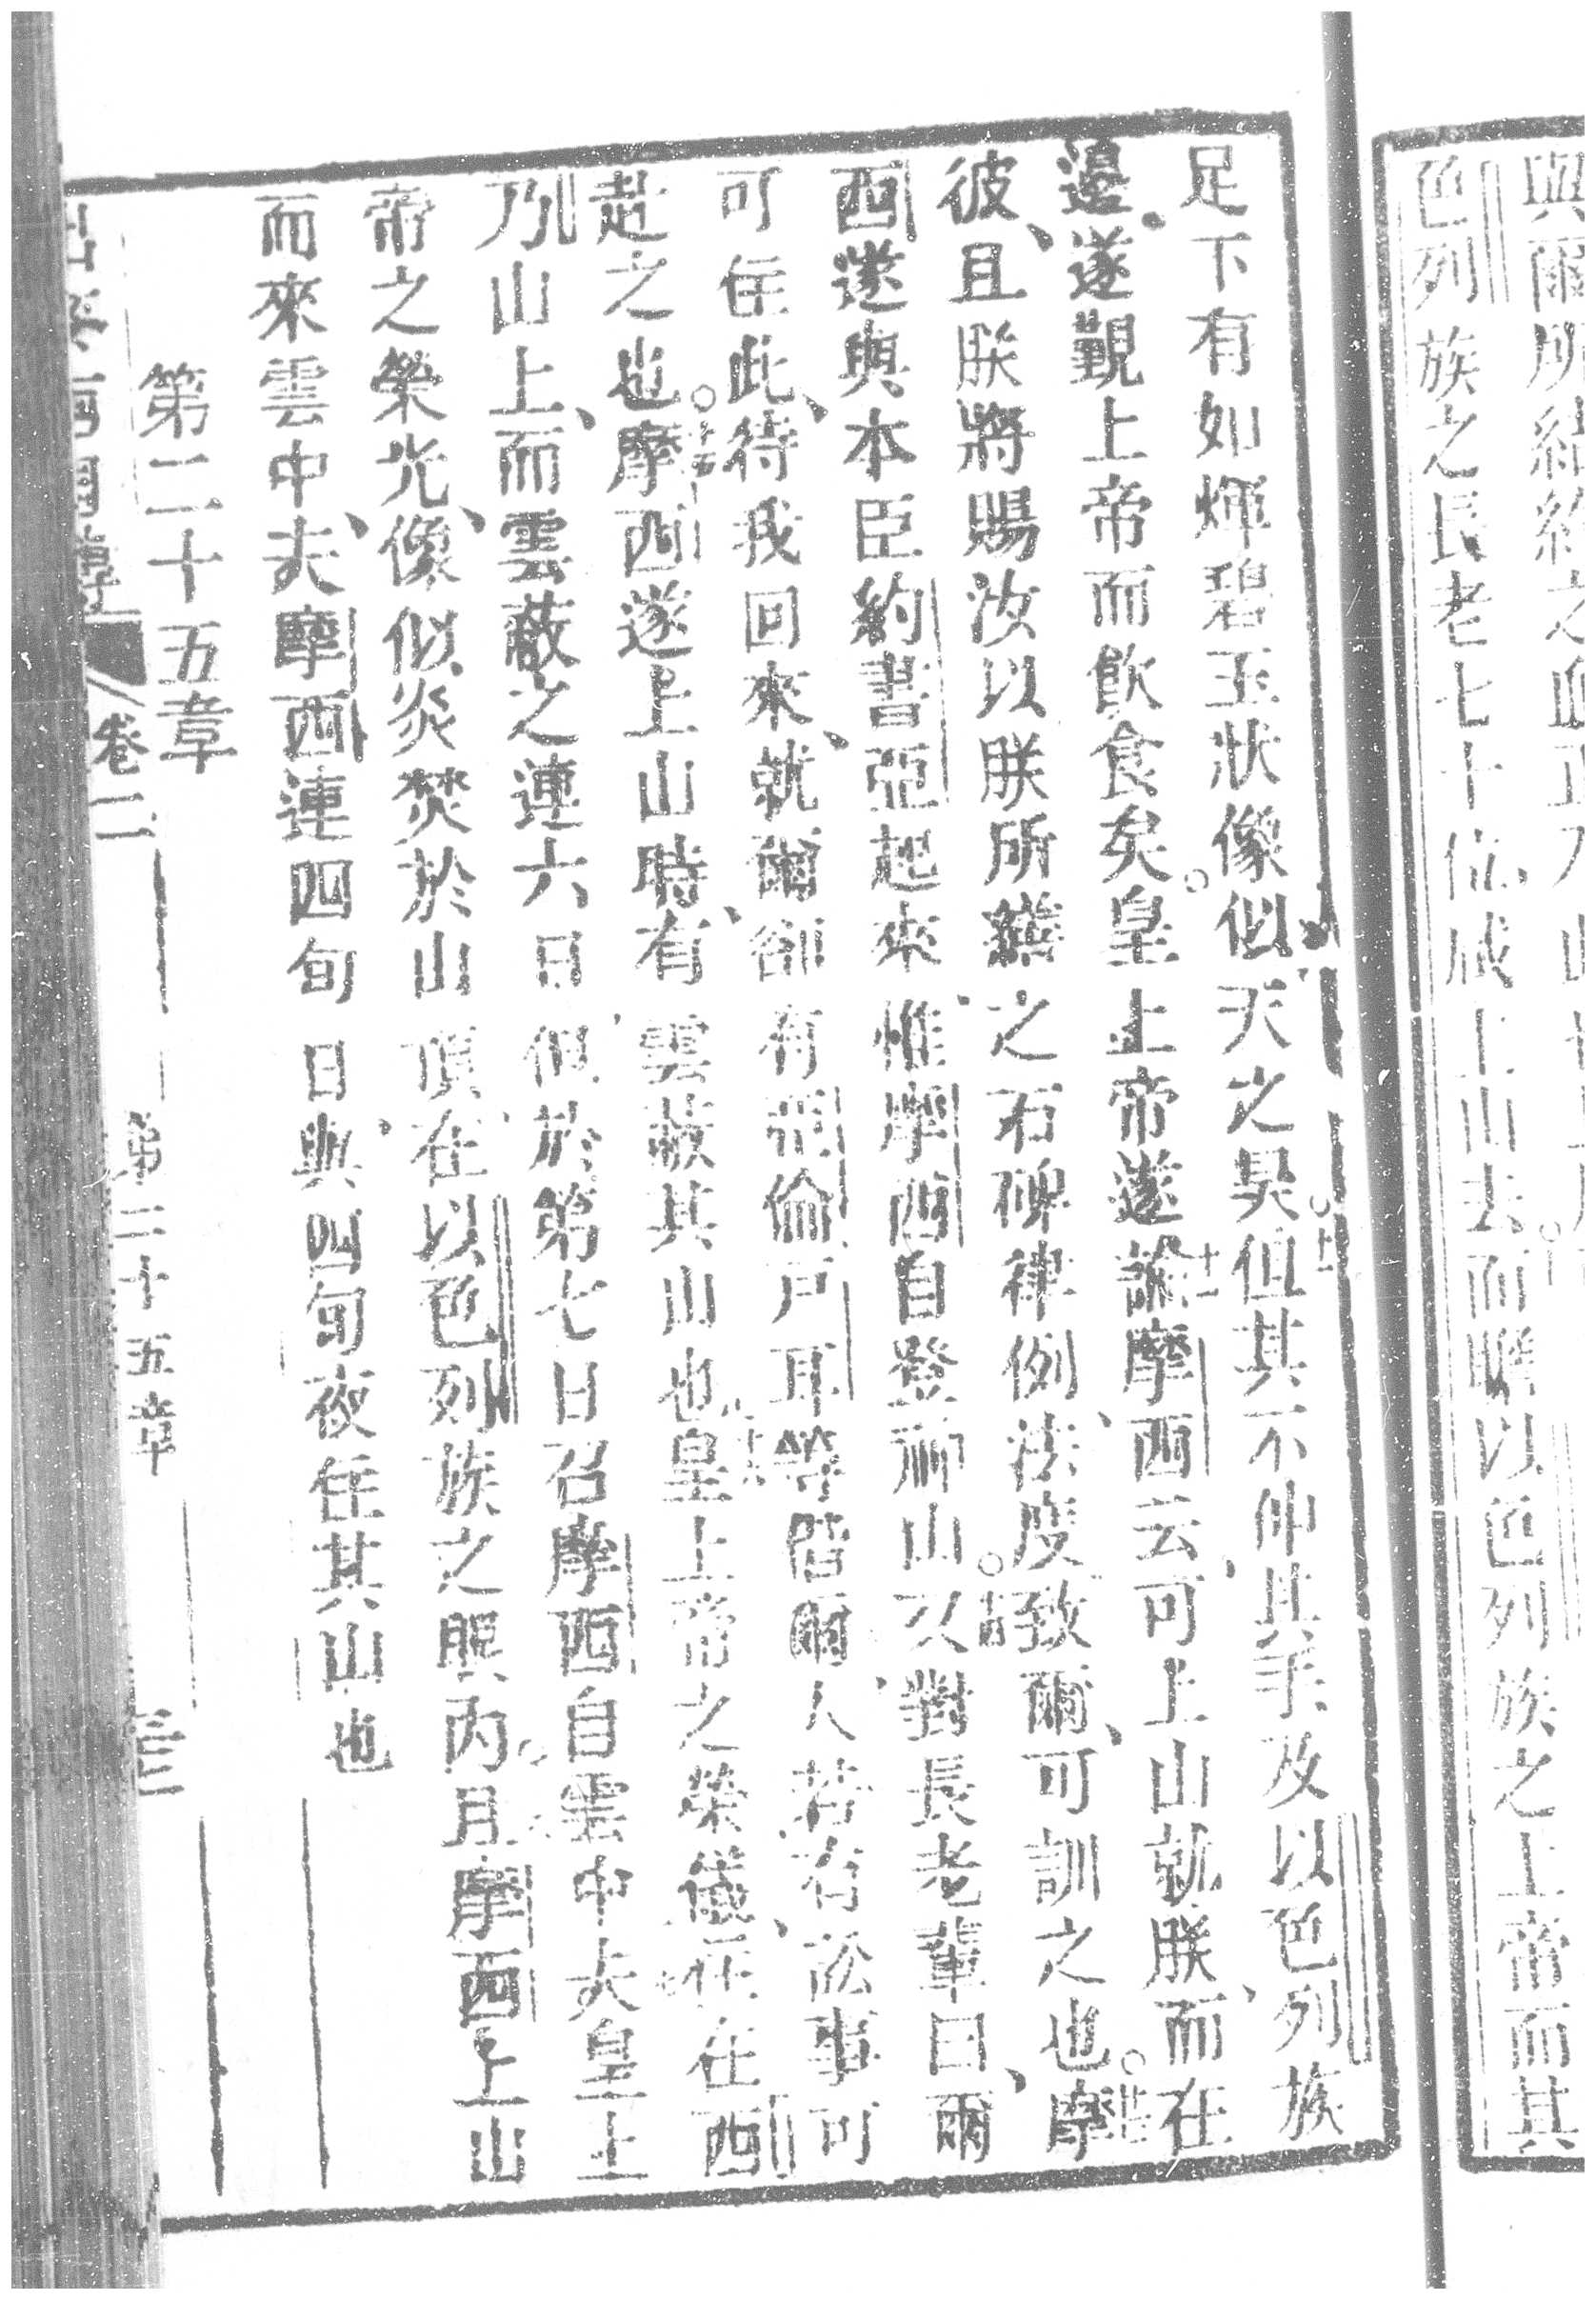 與爾所結約之血
色列族之長老七十位咸上山去而瞻以色列族之上帝而其
足下有如煇碧玉狀像似天之昊。十一但其不伸其手及以色列族
邊、遂覲上帝而飲食矣。十二皇上帝遂諭摩西云、可上山就朕、而在
彼、且朕將賜汝以朕所繕之石碑律例、法度、致爾可訓之也。十三摩
西遂與本臣約書亞起來、惟摩西自登神山。十四又對長老輩曰、爾
可在此、待我回來、就爾、卻有亞倫戶耳等偕爾、人若有訟事、可
赴之也。十五摩西遂上山時、有雲蔽其山也。十六皇上帝之榮儀在在西
乃山上、而雲蔽之連六日、但於第七日召摩西自雲中。夫皇上
帝之榮光、像似炎焚於山頂、在以色列族之眼內。且摩西上山
而來雲中、夫摩西連四旬日、與四旬夜在其山也
第二十五章
卷二 第二十五章